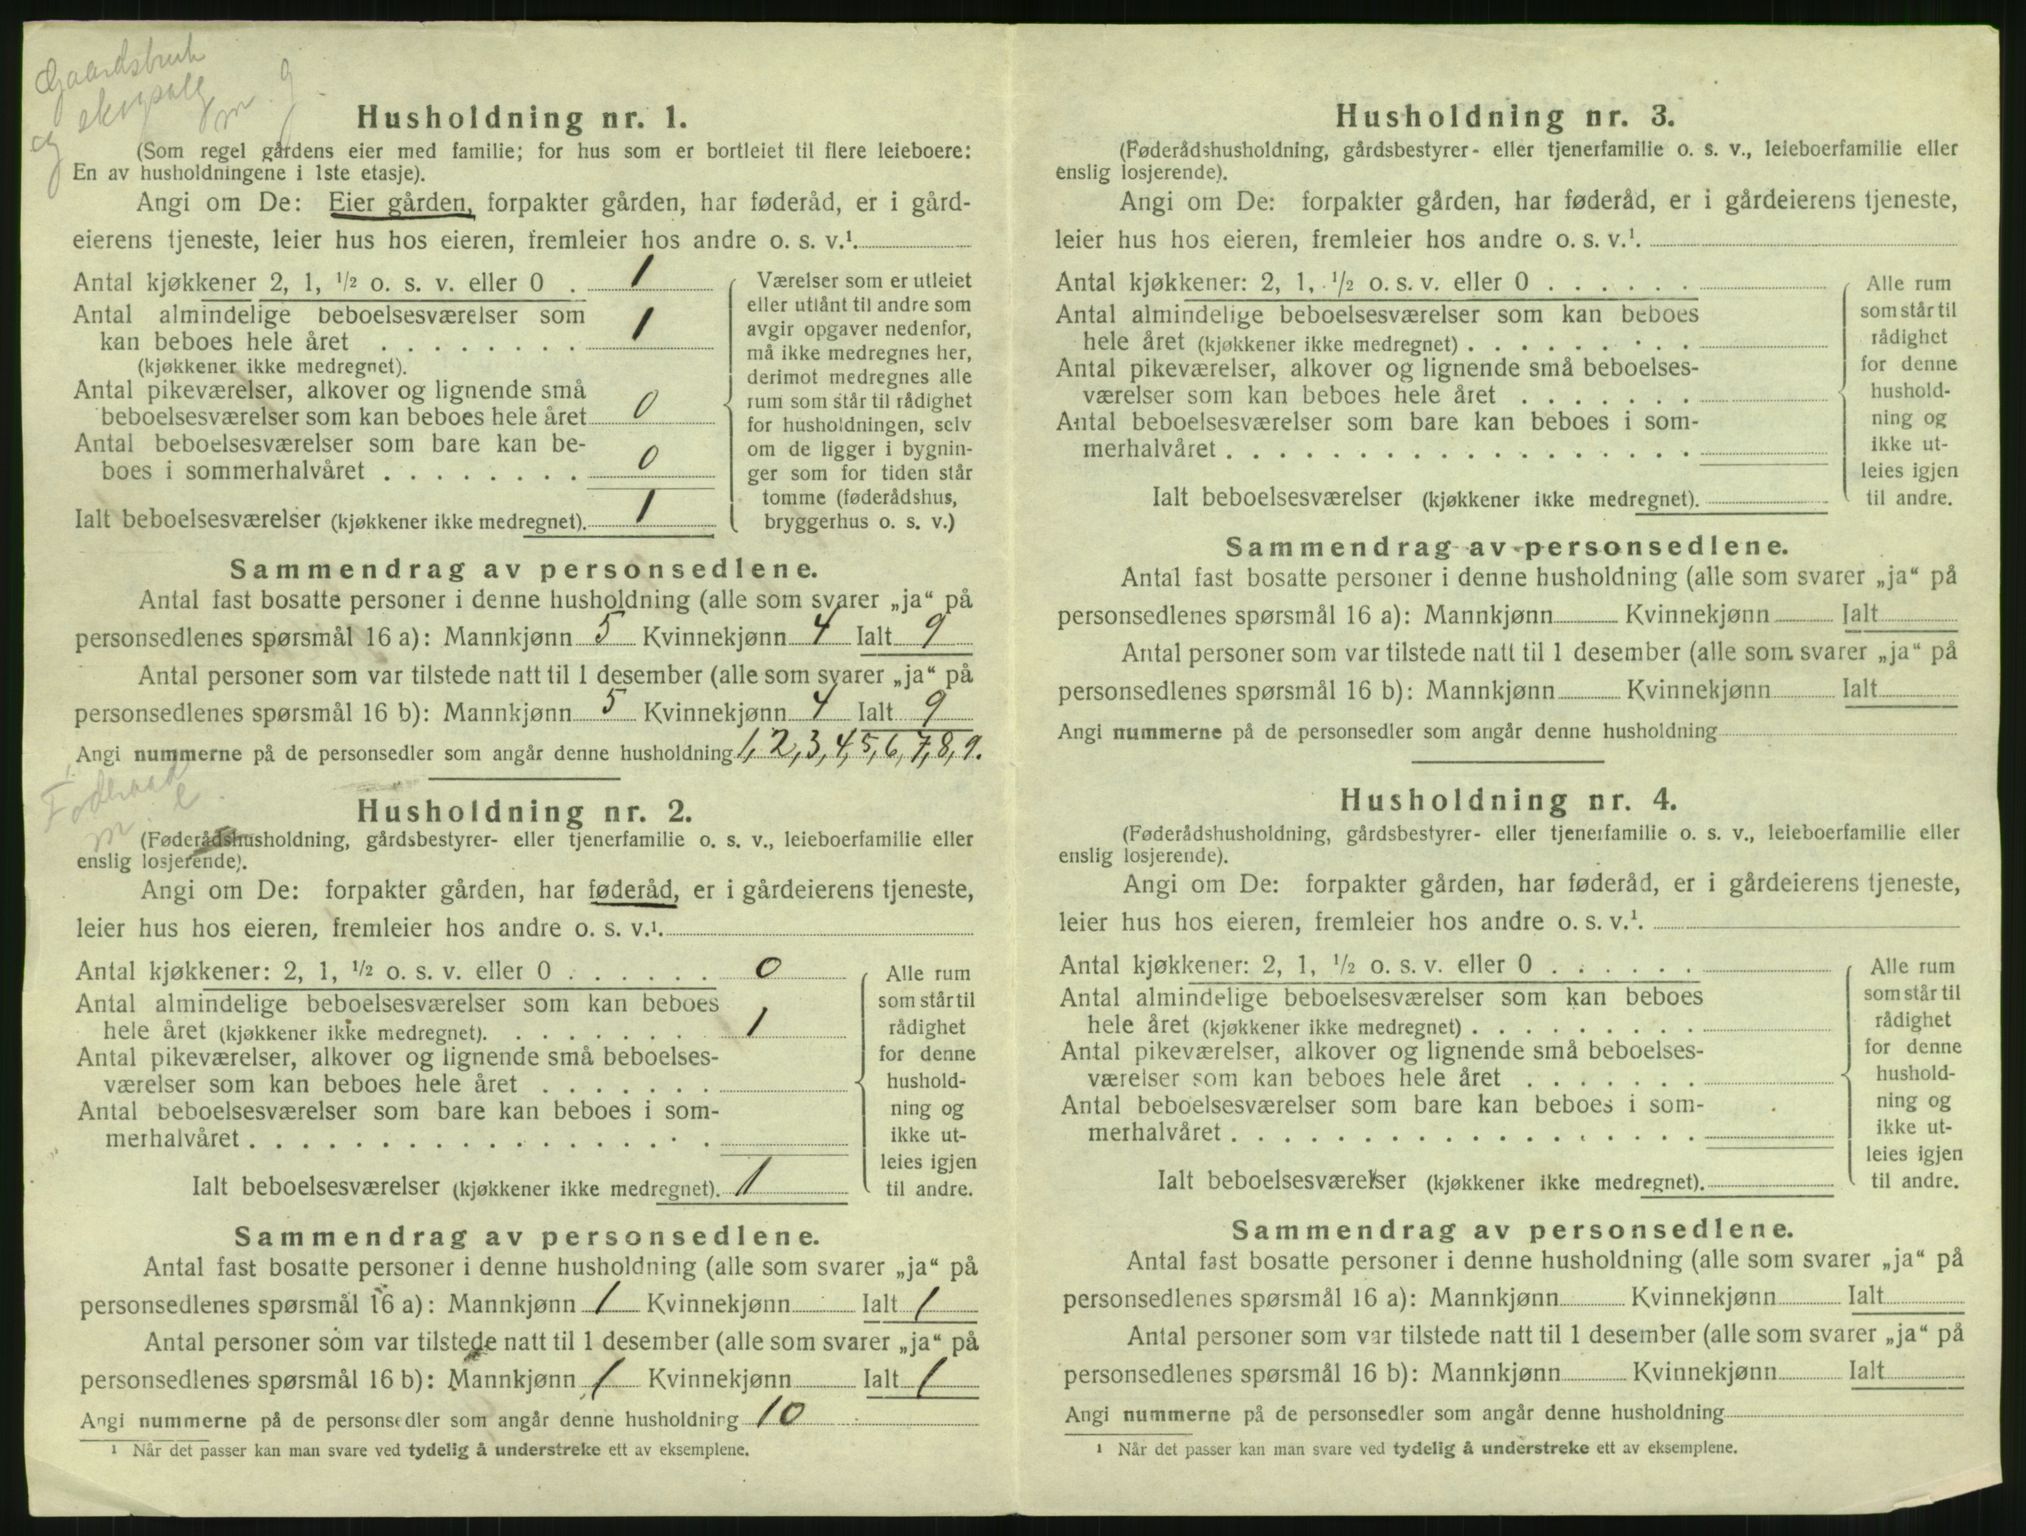 Gaardsbruk
og skogsalg
m. g.
Husholdning nr. 1.
(Som regel gårdens eier med familie; for hus som er bortleiet til flere leieboere:
En av husholdningene i 1ste etasje).
Angi om De: Eier gården, forpakter gården, har føderåd, er i gård-
eierens tjeneste, leier hus hos eieren, fremleier hos andre o. s. v.¹.
Antal kjøkkener 2, 1, ½ o. s. v. eller 0 . 1
Antal almindelige beboelsesværelser som
kan beboes hele året . . . . . . . . 1
(kjøkkener ikke medregnet).
Antal pikeværelser, alkover og lignende små
beboelsesværelser som kan beboes hele året 0
Antal beboelsesværelser som bare kan be-
boes i sommerhalvåret . . . . . . . 0
Ialt beboelsesværelser (kjøkkener ikke medregnet). 1
Værelser som er utleiet
eller utlånt til andre som
avgir opgaver nedenfor,
må ikke medregnes her,
derimot medregnes alle
rum som står til rådighet
for husholdningen, selv
om de ligger i bygnin-
ger som for tiden står
tomme (føderådshus,
bryggerhus o. s. v.)
Sammendrag av personsedlene.
Antal fast bosatte personer i denne husholdning (alle som svarer „ja“ på
personsedlenes spørsmål 16 a): Mannkjønn 5 Kvinnekjønn 4 Ialt 9
Antal personer som var tilstede natt til 1 desember (alle som svarer „ja“ på
personsedlenes spørsmål 16 b): Mannkjønn 5 Kvinnekjønn 4 Ialt 9
Angi nummerne på de personsedler som angår denne husholdning 1, 2, 3, 4, 5, 6, 7, 8, 9.
Føderaad
m. e.
Husholdning nr. 2.
(Føderådshusholdning, gårdsbestyrer- eller tjenerfamilie o. s. v., leieboerfamilie eller
enslig losjerende).
Angi om De: forpakter gården, har føderåd, er i gårdeierens tjeneste,
leier hus hos eieren, fremleier hos andre o. s. v.¹.
Antal kjøkkener: 2, 1, ½ o. s. v. eller 0 . . . . . . 0
Antal almindelige beboelsesværelser som kan beboes
hele året (kjøkkener ikke medregnet). . . . . . . . 1
Antal pikeværelser, alkover og lignende små beboelses-
værelser som kan beboes hele året . . . . . . .
Antal beboelsesværelser som bare kan beboes i som-
merhalvåret . . . . . . . . . . . . . . . . . .
Ialt beboelsesværelser (kjøkkener ikke medregnet). 1
Alle rum
som står til
rådighet
for denne
hushold-
ning og
ikke ut-
leies igjen
til andre.
Sammendrag av personsedlene.
Antal fast bosatte personer i denne husholdning (alle som svarer „ja“ på
personsedlenes spørsmål 16 a): Mannkjønn 1 Kvinnekjønn Ialt 1
Antal personer som var tilstede natt til 1 desember (alle som svarer „ja“ på
personsedlenes spørsmål 16 b): Mannkjønn 1 Kvinnekjønn Ialt 1
Angi nummerne på de personsedler som angår denne husholdning 10
¹ Når det passer kan man svare ved tydelig å understreke ett av eksemplene.
Husholdning nr. 3.
(Føderådshusholdning, gårdsbestyrer- eller tjenerfamilie o. s. v., leieboerfamilie eller
enslig losjerende).
Angi om De: forpakter gården, har føderåd, er i gårdeierens tjeneste,
leier hus hos eieren, fremleier hos andre o. s. v.¹.
Antal kjøkkener: 2, 1, ½ o. s. v. eller 0 . . . . . .
Antal almindelige beboelsesværelser som kan beboes
hele året (kjøkkener ikke medregnet) . . . . . . . . .
Antal pikeværelser, alkover og lignende små beboelses-
værelser som kan beboes hele året . . . . . . .
Antal beboelsesværelser som bare kan beboes i som-
merhalvåret . . . . . . . . . . . . . . . . . .
Ialt beboelsesværelser (kjøkkener ikke medregnet).
Alle rum
som står til
rådighet
for denne
hushold-
ning og
ikke ut-
leies igjen
til andre.
Sammendrag av personsedlene.
Antal fast bosatte personer i denne husholdning (alle som svarer „ja“ på
personsedlenes spørsmål 16 a): Mannkjønn Kvinnekjønn Ialt
Antal personer som var tilstede natt til 1 desember (alle som svarer „ja“ på
personsedlenes spørsmål 16 b): Mannkjønn Kvinnekjønn Ialt
Angi nummerne på de personsedler som angår denne husholdning
Husholdning nr. 4.
(Føderådshusholdning, gårdsbestyrer- eller tjenerfamilie o. s. v., leieboerfamilie eller
enslig losjerende).
Angi om De: forpakter gården, har føderåd, er i gårdeierens tjeneste,
leier hus hos eieren, fremleier hos andre o. s. v.¹.
Antal kjøkkener: 2, 1, ½ o. s. v. eller 0 . . . . . .
Antal almindelige beboelsesværelser som kan beboes
hele året (kjøkkener ikke medregnet) . . . . . . . . .
Antal pikeværelser, alkover og lignende små beboelses-
værelser som kan beboes hele året . . . . . . .
Antal beboelsesværelser som bare kan beboes i som-
merhalvåret . . . . . . . . . . . . . . . . . .
Ialt beboelsesværelser (kjøkkener ikke medregnet).
Alle rum
som står til
rådighet
for denne
hushold-
ning og
ikke ut-
leies igjen
til andre.
Sammendrag av personsedlene.
Antal fast bosatte personer i denne husholdning (alle som svarer „ja“ på
personsedlenes spørsmål 16 a): Mannkjønn Kvinnekjønn Ialt
Antal personer som var tilstede natt til 1 desember (alle som svarer „ja“ på
personsedlenes spørsmål 16 b): Mannkjønn Kvinnekjønn Ialt
Angi nummerne på de personsedler som angår denne husholdning
¹ Når det passer kan man svare ved tydelig å understreke ett av eksemplene.